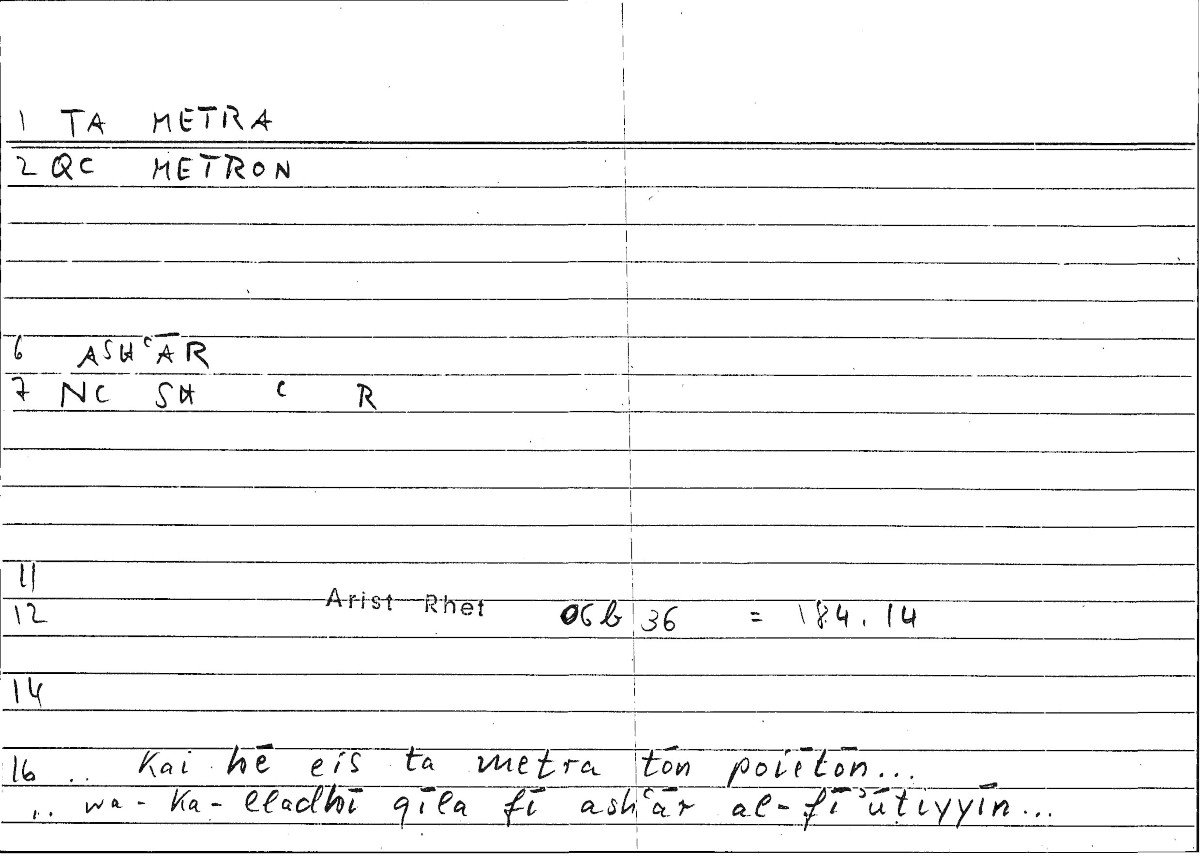 1 TA METRA
2 QC METRON
6 ASHʿĀR
7 NC SH ʿ R
11
Arist Rhet
12 06b 36 = 184.14
14
16 .. Kai hē eis ta metra tōn poiētōn...
.. wa-ka-lladhī qīla fī ashʿār al-fīʾūtiyyīn...